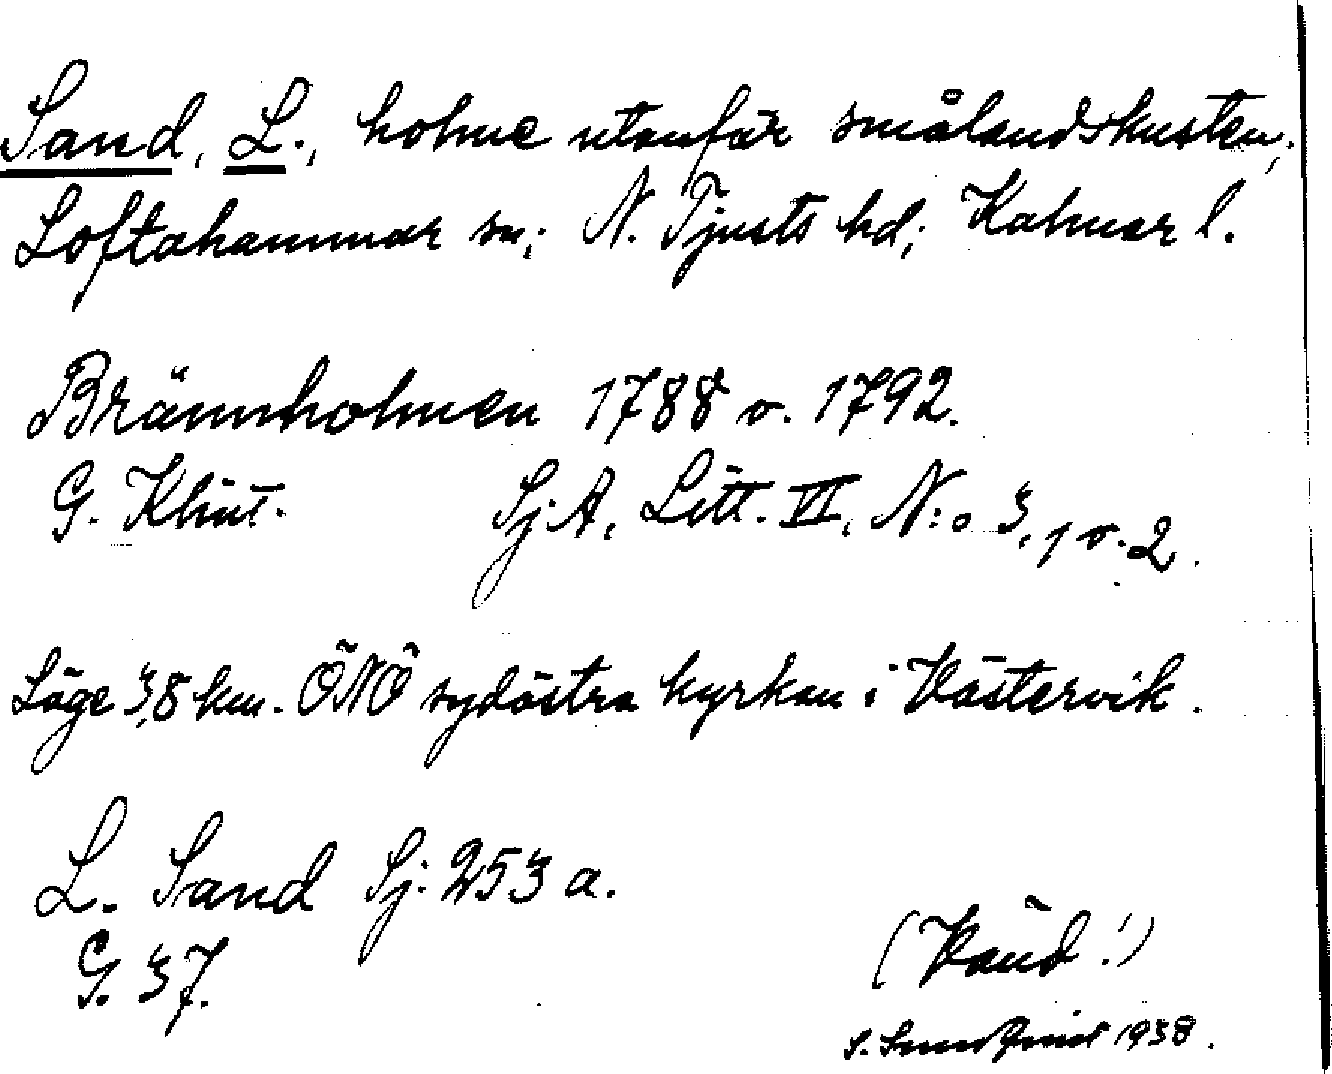 Sand, L., holme utanför smålandskusten;
Loftahammar sn; N. Tjusts hd; Kalmar l.
Brännholmen 1788 o. 1792.
G. Klint. Sj. A, Litt. VI, N:o 3, 1 o. 2.
Läge 3,8 km. ÖNÖ sydöstra kyrkan i Västervik.
L. Sand Sj. 253 a.
G. 37.
(Vänd!)
1938.